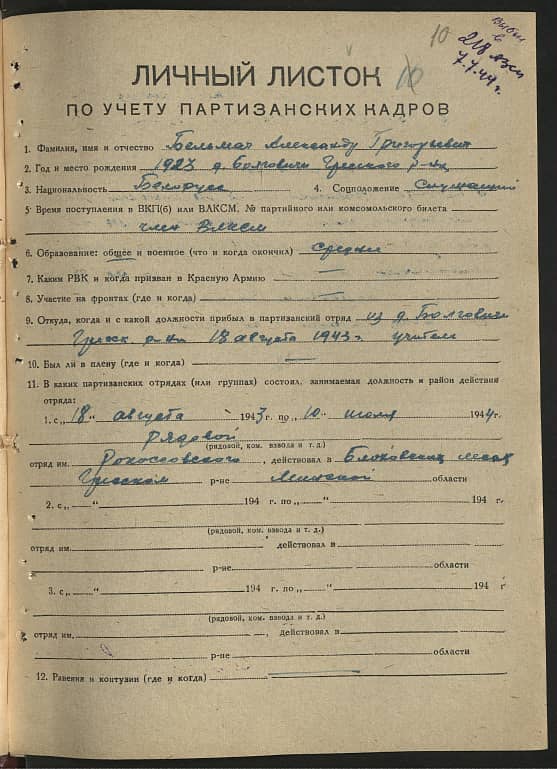 10
Выбыл
в
218 азсп
7.7.44 г.
ЛИЧНЫЙ ЛИСТОК 10
ПО УЧЕТУ ПАРТИЗАНСКИХ КАДРОВ
1. Фамилия, имя и отчество Бельмач Александр Григорьевич
2. Год и место рождения 1923 д. Болговичи Гресского р-на
3. Национальность Белорусс 4. Соцположение Служащий
5 Время поступления в ВКП(б) или ВЛКСМ, № партийного или комсомольского билета
член ВЛКСМ
6. Образование: общее и военное (что и когда окончил) средн
7. Каким РВК и когда призван в Красную Армию —
8. Участие на фронтах (где и когда) —
9. Откуда, когда и с какой должности прибыл в партизанский отряд из д. Болговичи
Гресск р-на 18 августа 1943г. учителе
10. Был ли в плену (где и когда) —
11. В каких партизанских отрядах (или группах) состоял, занимаемая должность и район действия
отряда:
1. с „18“ августа 1943 г. по „10“ июля 1944 г.
рядовой
(рядовой, ком. взвода и т. д.)
отряд им. Рокоссовского, действовал в лесах
Гресском р-не Минской области
2. с „ “ 194 г. по „ “ 194 г.
(рядовой, ком. взвода и т. д.)
отряд им. действовал в
р-не области
3. с „ “ 194 г. по „ “ 194 г
(рядовой, ком. взвода и т. д.)
отряд им. , действовал в
р-не области
12. Ранения и контузии (где и когда) —